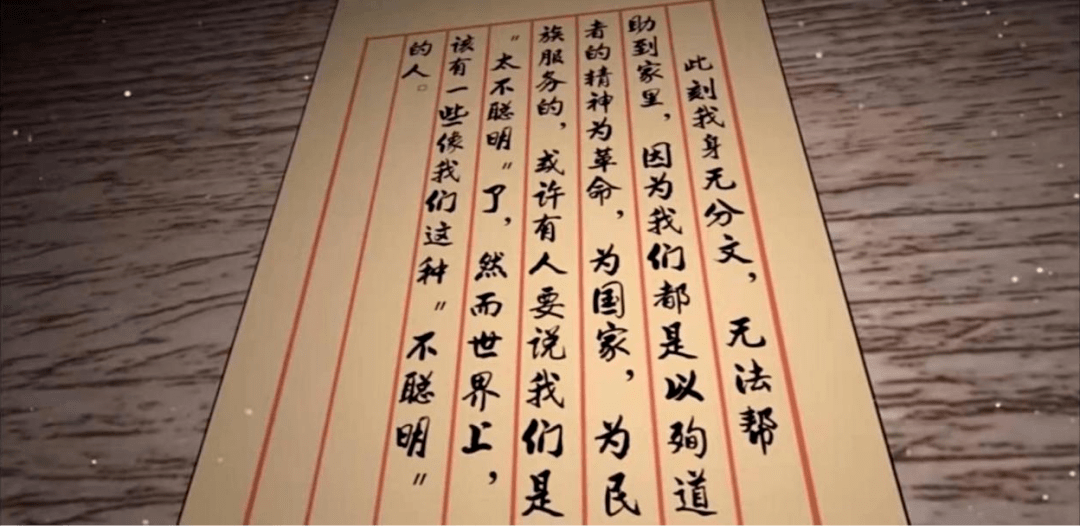 此刻我身无分文，无法帮
助到家里，因为我们都是以殉道
者的精神为革命，为国家，为民
族服务的，或许有人要说我们是
“太不聪明”了，然而世界上，
该有一些像我们这种“不聪明”
的人。